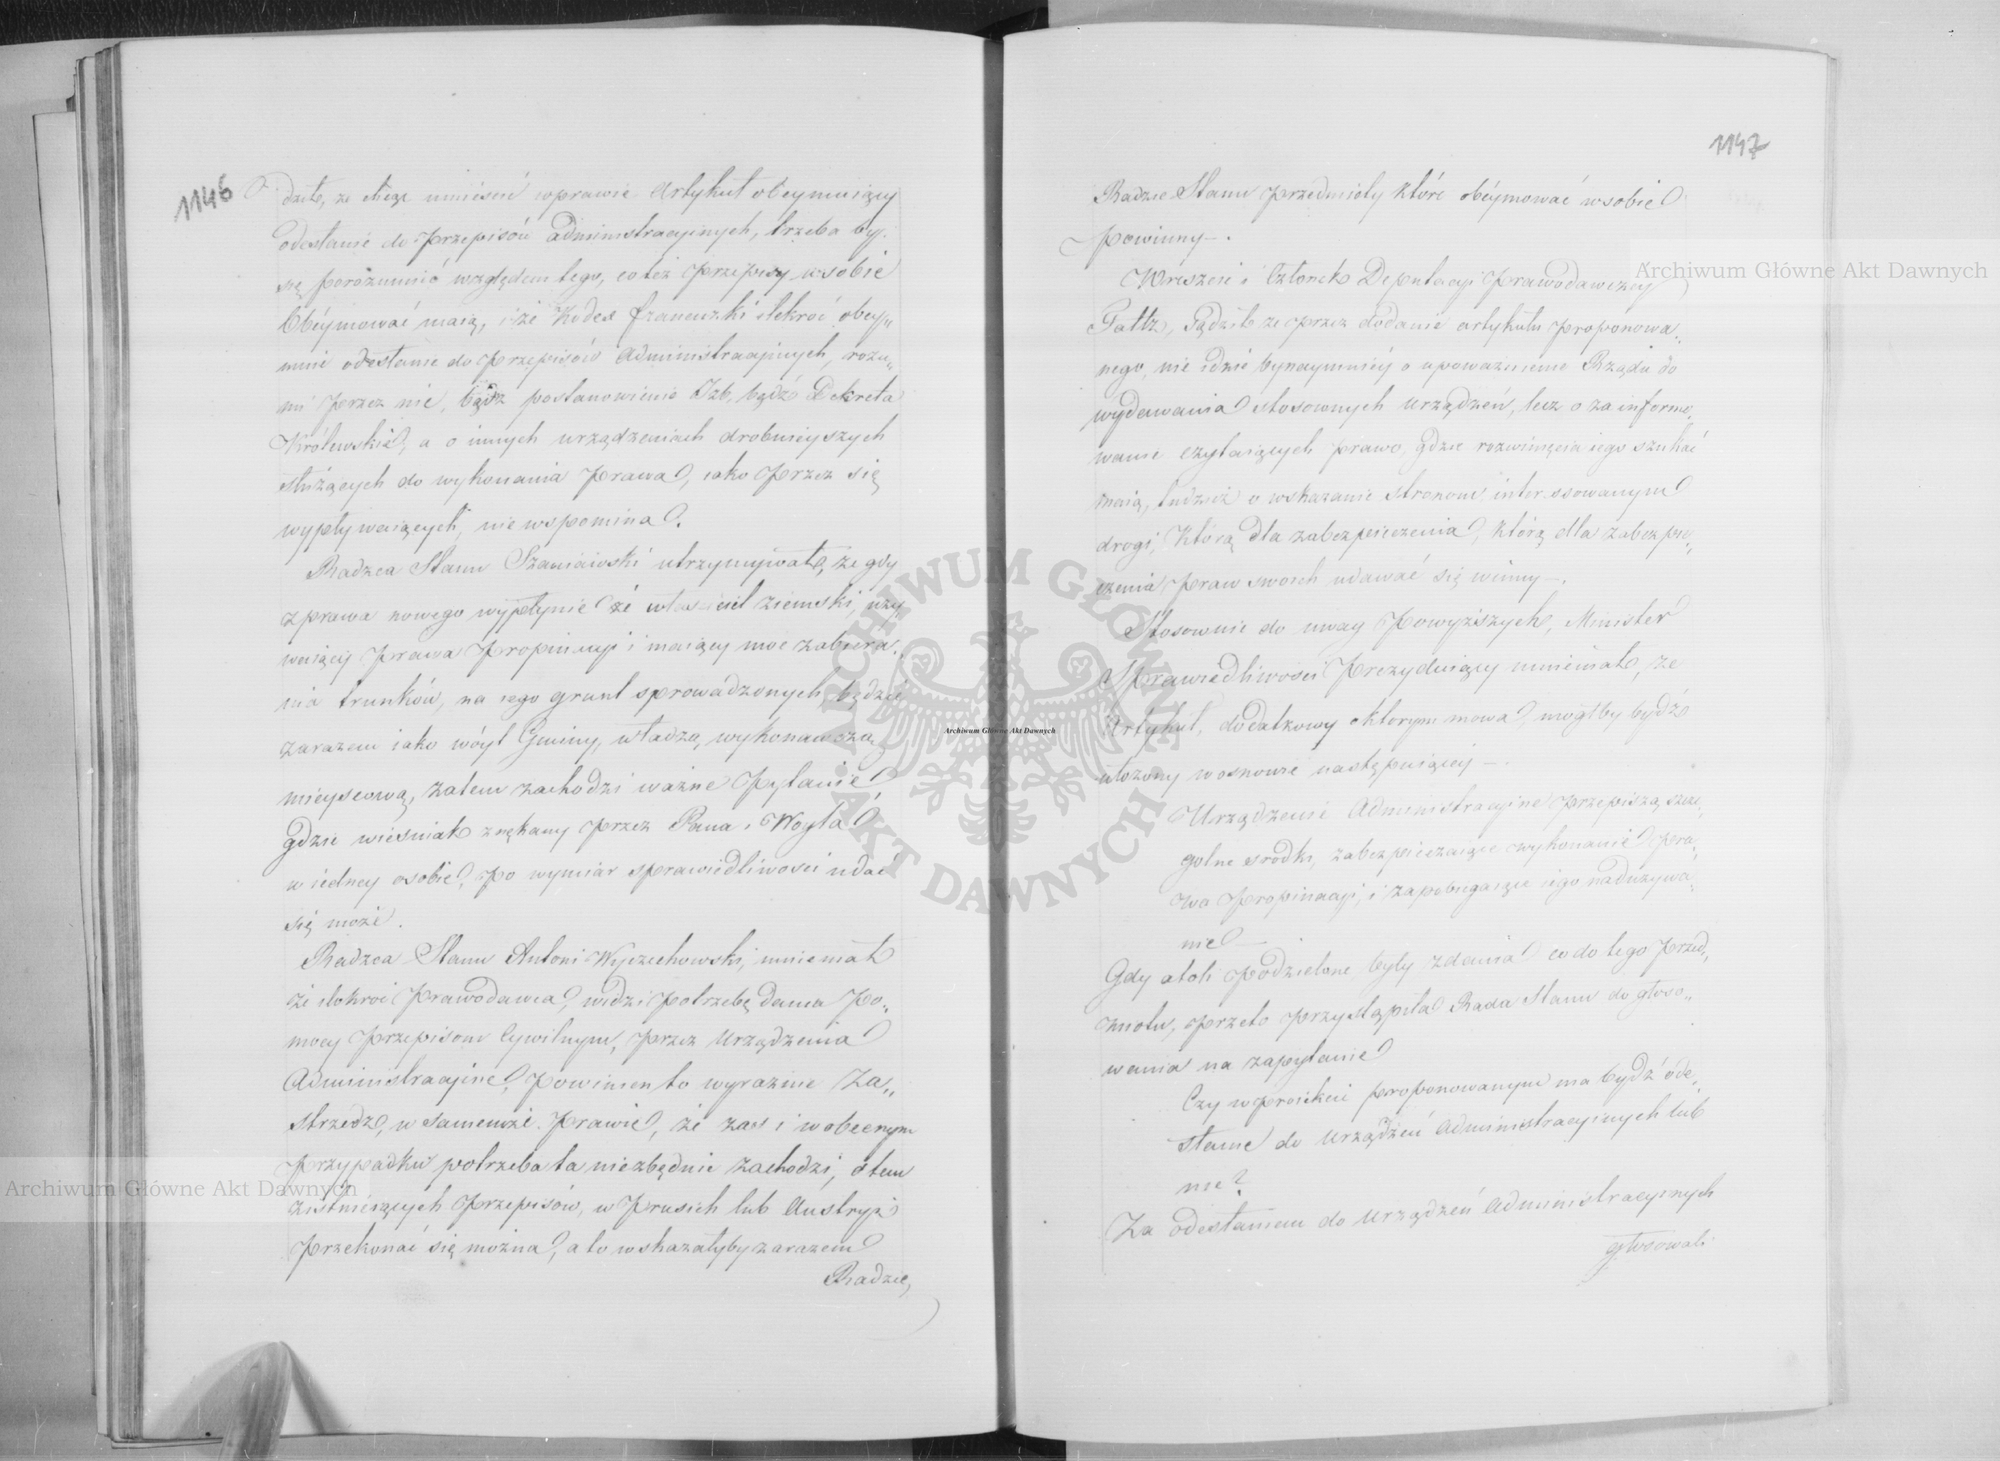 1146
dził, że chcąc umieścić w prawie Artykuł obeymuiący
odesłanie do Przepisów Administracyinych, trzeba by
się porozumieć względem tego, co też Przepisy w sobie
Obéymować maią, i że Kodex francuzki ilekroć obey„
muie odesłanie do Przepisów Administracyinych, rozu„
mi przez nie, bądź postanowienia Izb, bądź Dekreta
Królewskie, a o innych urządzeniach drobnieyszych
służących do wykonania Prawa, iako Przez się
wypływaiących, nie wspomina.
Radzca Stanu Szaniawski utrzymywał, że gdy
z prawa nowego wypłynie że właściciel ziemski, uży„
waiący Prawa Propinacyi i maiący moc zabiera„
nia trunków, na iego grunt sprowadzonych, będzie
zarazem iako wóyt Gminy, władzą, wykonawczą
mieyscową, zatem zachodzi ważne Pytanie
gdzie wieśniak znękany Przez Pana i Woyta
w iedney osobie, Po wymiar sprawiedliwości udać
się może.
Radzca Stanu Antoni Wyczechowski, mniemał
że ilekroć Prawodawca, widzi Potrzebę dania Po„
mocy Przepisom Cywilnym, Przez Urządzenia
Administracyine, Powinien to wyraźnie Za„
strzedz, w samemże Prawie, że zaś i w obecnym
Przypadku potrzeba ta niezbędnie zachodzi, o tem
z istnieiących Przepisów, w Prusiech lub Austryi
Przekonać się można, a to wskazałyby zarazem
Radzie,
1147
Radzie Stanu Przedmioty które obéymować w sobie
Powinny.
Wreszcie i Członek Deputacyi Prawodawczey
Faltz, Sądził że Przez dodanie artykułu Proponowa„
nego, nie idzie bynaymniéy o upoważnienie Rządu do
wydawania stosownych urządzeń, lecz o zainformo„
wanie czytaiących prawo, gdzie rozwinięcia iego szukać
maią, tudzież o wskazanie stronom interessowanym
drogi, którą dla zabezpieczenia, którą dla zabezpie„
czenia Praw swoich udawać się winny.
Stosownie do uwag Powyższych, Minister
Sprawiedliwości Prezyduiący mniemał, że
Artykuł, dodatkowy o którym mowa, mógłby bydź
ułożony w osnowie następuiącéy
Urządzenie Administracyine przepiszą szcze„
gólne środki, zabezpieczaiące wykonanie Pra„
wa Propinacyi, i zapobiegaiące iego nadużywa„
nie
Gdy atoli Podzielone były zdania co do tego Przed„
miotu, Przeto Przystąpiła Rada Stanu do głoso„
wania na zapytanie
Czy w proiekcie proponowanym ma bydź ode„
słanie do urządzeń Administracyinych lub
nie?
Za odesłaniem do Urządzeń Administracyinych
głosowali
Archiwum Główne Akt Dawnych
Archiwum Główne Akt Dawnych
Archiwum Główne Akt Dawnych
ARCHIWUM GŁÓWNE AKT DAWNYCH